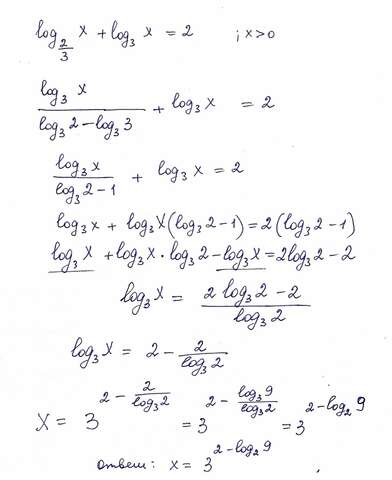 log_{2/3} x + log_3 x = 2 ; x>0
\frac{log_3 x}{log_3 2 - log_3 3} + log_3 x = 2
\frac{log_3 x}{log_3 2 - 1} + log_3 x = 2
log_3 x + log_3 x (log_3 2 - 1) = 2 (log_3 2 - 1)
log_3 x + log_3 x · log_3 2 - log_3 x = 2 log_3 2 - 2
log_3 x = \frac{2 log_3 2 - 2}{log_3 2}
log_3 x = 2 - \frac{2}{log_3 2}
x = 3^{2 - \frac{2}{log_3 2}} = 3^{2 - \frac{log_3 9}{log_3 2}} = 3^{2 - log_2 9}
ответ: x = 3^{2 - log_2 9}.